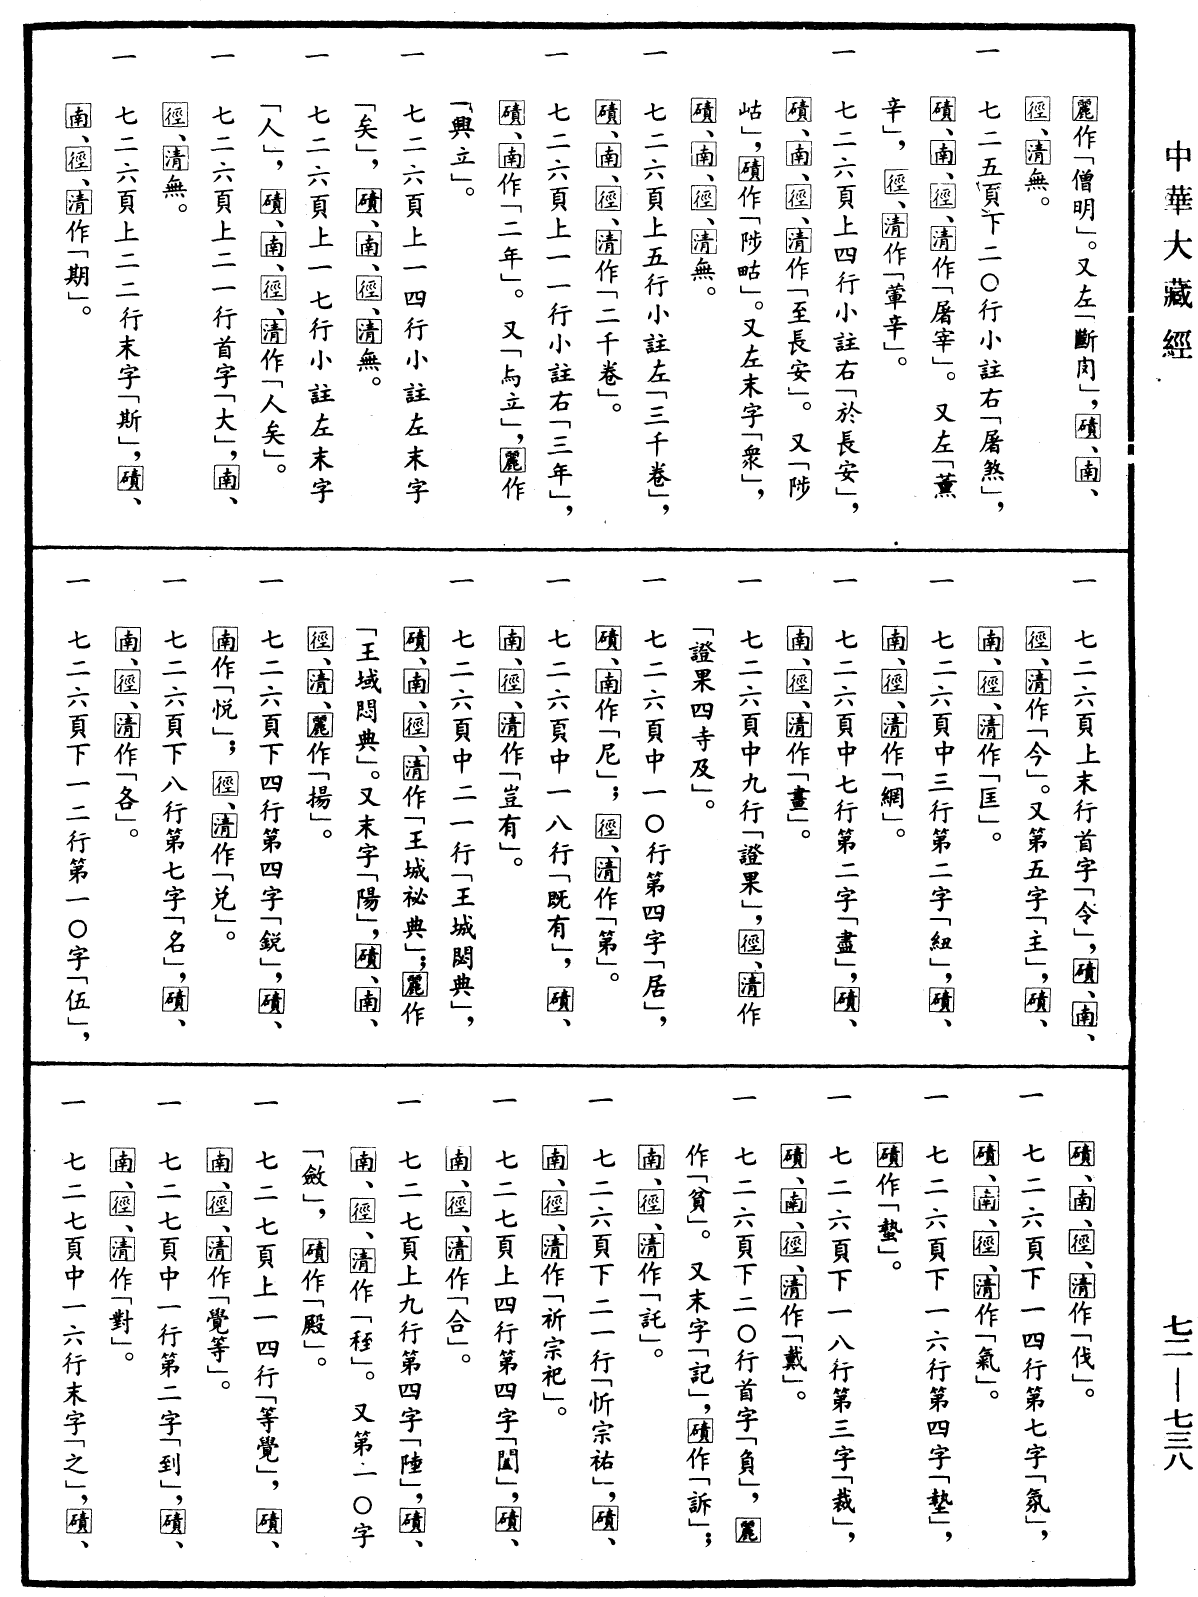 中華大藏經
麗作「僧明」。又左「斷肉」，磧、南、
徑、清無。
一 七二五頁下二〇行小註右「屠煞」，
磧、南、徑、清作「屠宰」。又左「薰
辛」，徑、清作「葷辛」。
一 七二六頁上四行小註右「於長安」，
磧、南、徑、清作「至長安」。又「陟
岵」，磧作「陟𤱶」。又左末字「衆」，
磧、南、徑、清無。
一 七二六頁上五行小註左「三千卷」，
磧、南、徑、清作「二千卷」。
一 七二六頁上一一行小註右「三年」，
磧、南作「二年」。又「与立」，麗作
「興立」。
一 七二六頁上一四行小註左末字
「矣」，磧、南、徑、清無。
一 七二六頁上一七行小註左末字
「人」，磧、南、徑、清作「人矣」。
一 七二六頁上二一行首字「大」，南、
徑、清無。
一 七二六頁上二二行末字「斯」，磧、
南、徑、清作「期」。
一 七二六頁上末行首字「令」，磧、南、
徑、清作「今」。又第五字「主」，磧、
南、徑、清作「匡」。
一 七二六頁中三行第二字「紐」，磧、
南、徑、清作「網」。
一 七二六頁中七行第二字「盡」，磧、
南、徑、清作「畫」。
一 七二六頁中九行「證果」，徑、清作
「證果四寺及」。
一 七二六頁中一〇行第四字「居」，
磧、南作「尼」；徑、清作「第」。
一 七二六頁中一八行「既有」，磧、
南、徑、清作「豈有」。
一 七二六頁中二一行「王城閟典」，
磧、南、徑、清作「王城祕典」；麗作
「王域悶典」。又末字「陽」，磧、南、
徑、清、麗作「揚」。
一 七二六頁下四行第四字「銳」，磧、
南作「悅」；徑、清作「兑」。
一 七二六頁下八行第七字「名」，磧、
南、徑、清作「各」。
一 七二六頁下一二行第一〇字「伍」，
磧、南、徑、清作「伐」。
一 七二六頁下一四行第七字「氛」，
磧、南、徑、清作「氣」。
一 七二六頁下一六行第四字「墊」，
磧作「蟄」。
一 七二六頁下一八行第三字「裁」，
磧、南、徑、清作「戴」。
一 七二六頁下二〇行首字「負」，麗
作「貧」。又末字「記」，磧作「訴」；
南、徑、清作「託」。
一 七二六頁下二一行「忻宗祐」，磧、
南、徑、清作「祈宗祀」。
一 七二七頁上四行第四字「闔」，磧、
南、徑、清作「合」。
一 七二七頁上九行第四字「陲」，磧、
南、徑、清作「秷」。又第一〇字
「斂」，磧作「殿」。
一 七二七頁上一四行「等覺」，磧、
南、徑、清作「覺等」。
一 七二七頁中一行第二字「到」，磧、
南、徑、清作「對」。
一 七二七頁中一六行末字「之」，磧、
七二—七三八